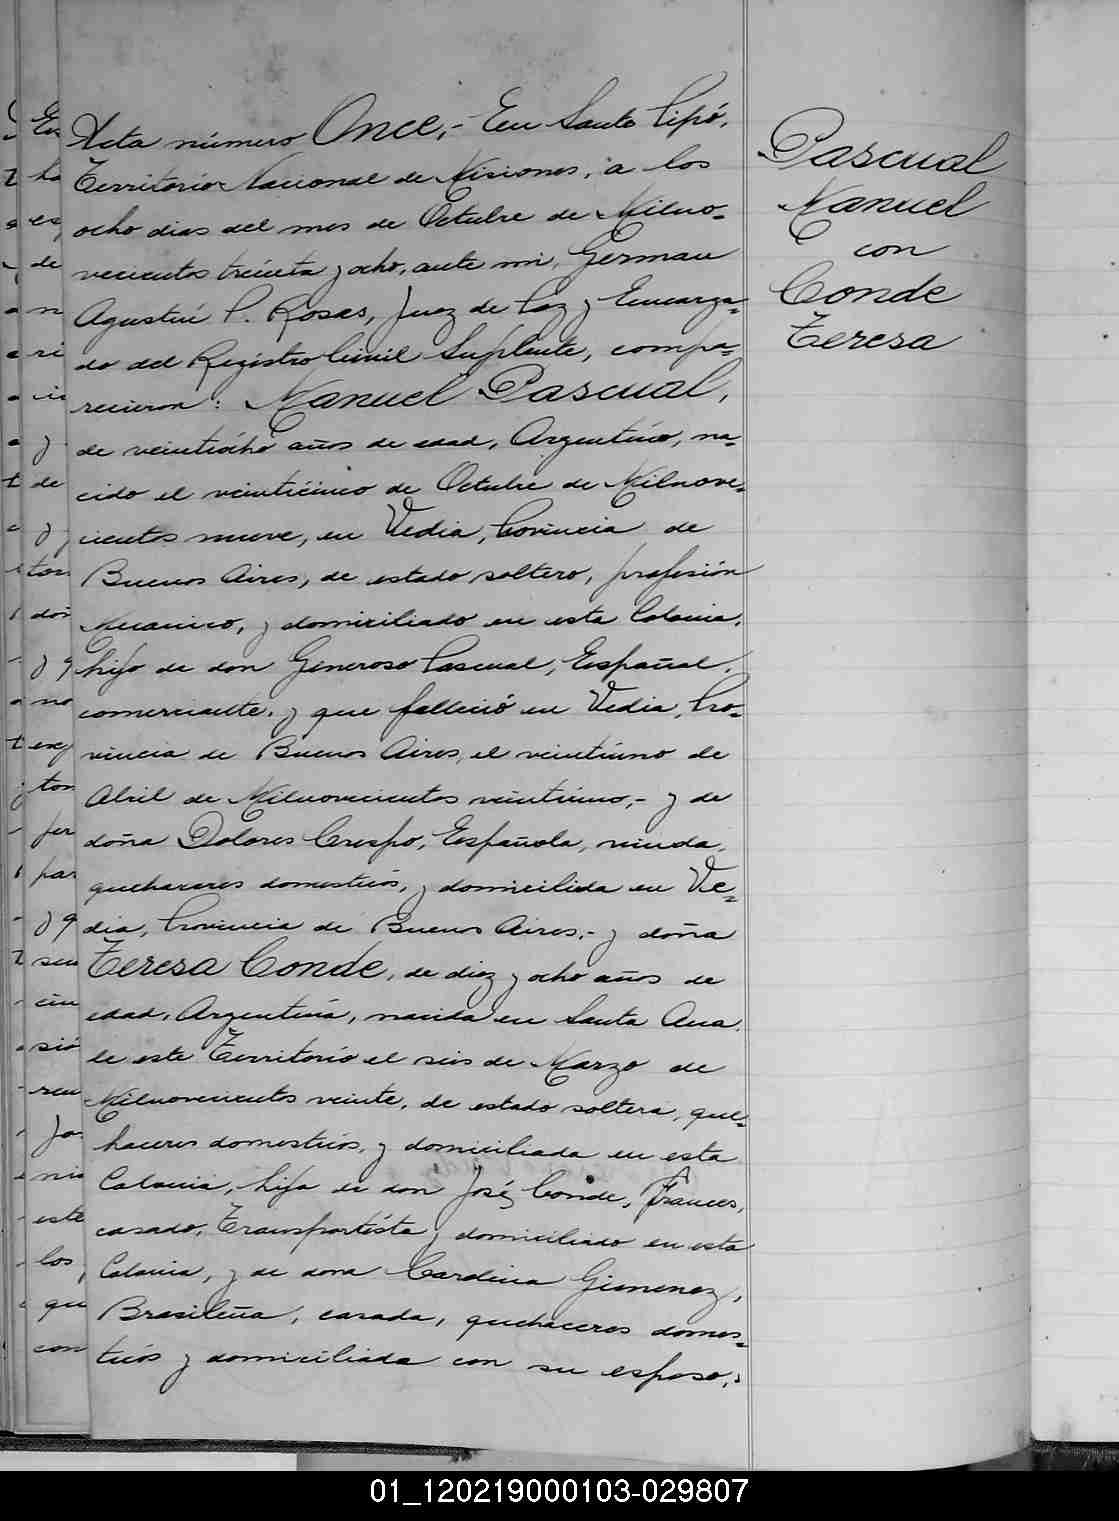 Acta número Once.- En Santo Pipó,
Territorio Nacional de Misiones, a los
ocho dias del mes de Octubre de Milno-
vecientos treinta y ocho, ante mi, German
Agustin P. Rosas, Juez de Paz y Encarga=
do del Registro Civil Suplente, compa=
recieron: Manuel Pascual,
de veintiocho años de edad, Argentino, na=
cido el veinticinco de Octubre de Milnove=
cientos nueve, en Vedia, Provincia de
Buenos Aires, de estado soltero, profesión
Mecanico, y domiciliado en esta Colonia,
hijo de don Generoso Pascual, Español,
comerciante, y que falleció en Vedia, Pro=
vincia de Buenos Aires, el veintiuno de
Abril de Milnovecientos veintiuno,- y de
doña Dolores Crespo, Española, viuda,
quehaceres domesticos, y domicilida en Ve=
dia, Provincia de Buenos Aires,- y doña
Teresa Conde, de diez y ocho años de
edad, Argentina, nacida en Santa Ana
de este Territorio el seis de Marzo de
Milnovecientos veinte, de estado soltera, que=
haceres domesticos, y domiciliada en esta
Colonia, hija de don José Conde, Frances,
casado, Transportista y domiciliado en esta
Colonia, y de dona Carolina Gimenez,
Brasileña, casada, quehaceres domes=
ticos y domiciliada con su esposo,:
Pascual
Manuel
con
Conde
Teresa
01_120219000103-029807